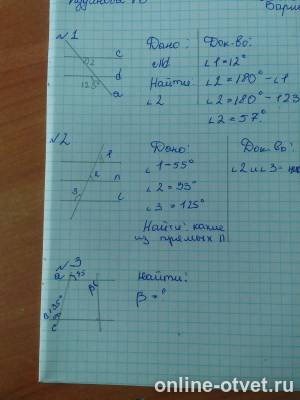 Вариа
№1
Дано:
Док-во:
c
2
d
123°
a
c∥d
Найти
∠2
∠1=12°
∠2=180°-∠1
∠2=180°-123
∠2=57°
№2
Дано:
Док-во:
1
2
n
3
∠1-55°
∠2=55°
∠3=125°
∠2 и ∠3-
Найти: какие
из прямых ∥
№3
Найти:
a
β
β= °
c
online-otvet.ru